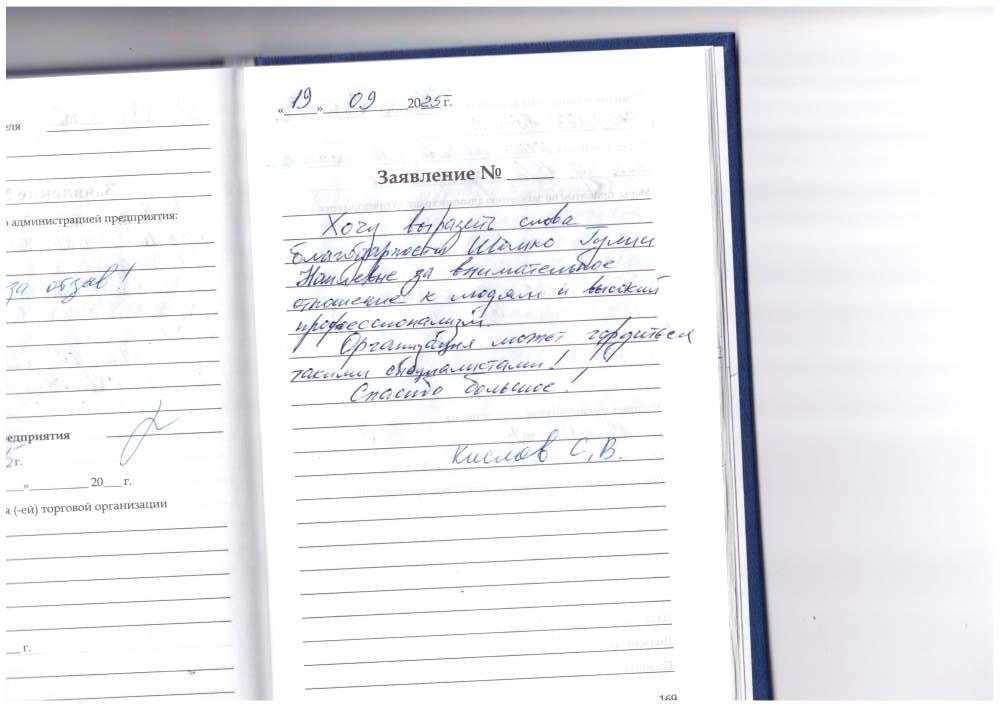 еля
о администрацией предприятия:
за отзыв!
едприятия
5 г.
» 20 г.
я (-ей) торговой организации
г.
«19» 09 2025 г.
Заявление №
Хочу выразить слова
благодарности Шамко Гулии
Наилевне за внимательное
отношение к людям и высокий
профессионализм.
Организация может гордиться
такими специалистами!
Спасибо большое!
Кислов С.В.
169